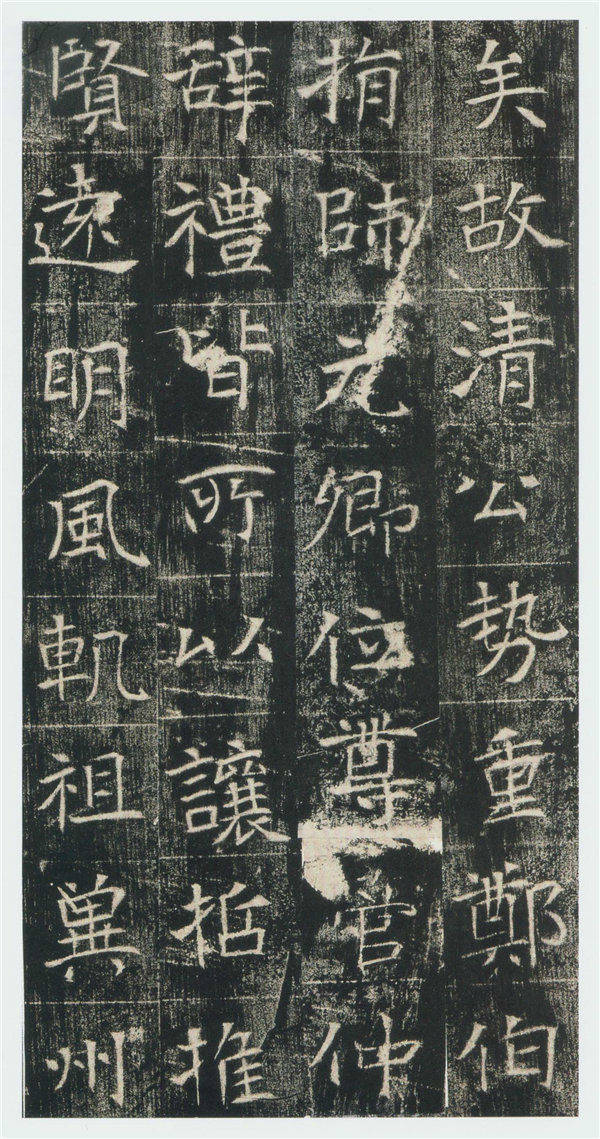 矣故清公势重鄭伯
捐師元卿位尊菅仲
辞禮皆所以讓哲推
賢遠明風軌祖冀州